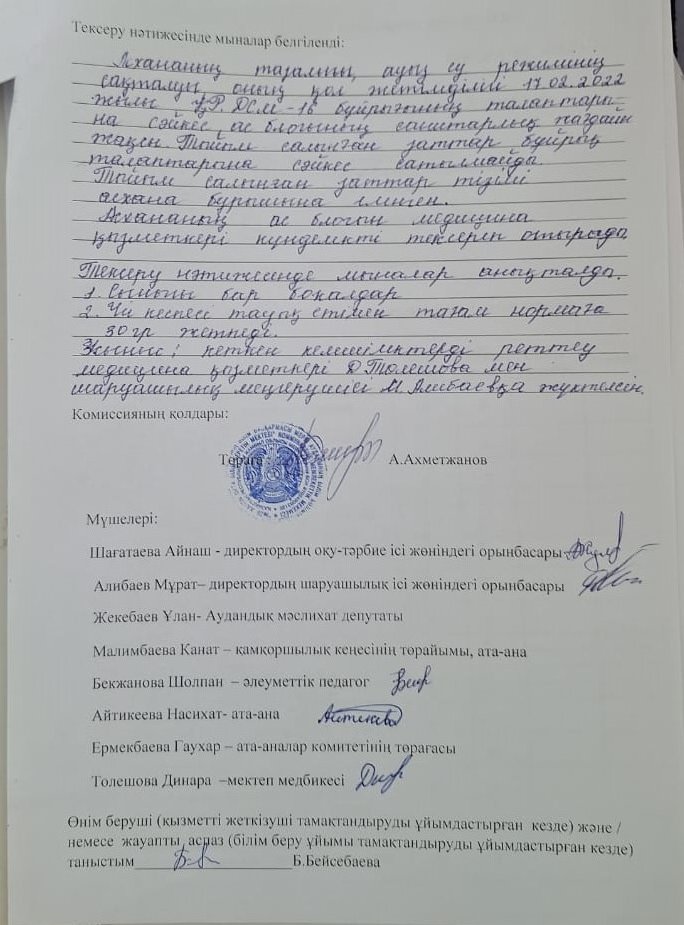 Тексеру нәтижесінде мыналар белгіленді:
Асхананың тазалығы, ауыз су режимінің
сақталуы, оның қол жетімділігі 17.02.2022
жылы ҚР. ДСМ-16 бұйрығының талаптары
на сәйкес, ас блогының санитарлық жағдайы
жақсы. Тыйым салынған заттар бұйрық
талаптарына сәйкес сатылмайды
Тыйым салынған заттар тізімі
асхана бұрышына ілінген.
Асхананың ас блогын медицина
қызметкері күнделікті тексеріп отырады
Тексеру нәтижесінде мыналар анықталды.
1. Сынығы бар бокалдар
2. Үй кеспесі тауық етімен тағам нормаға
30 гр жетпеді.
Ұсыныс: кеткен келеңсіздіктерді реттеу
медицина қызметкері Д Толешова мен
шаруашылық меңгерушісі М. Алибаевқа жүктелсін.
Комиссияның қолдары:
Төраға А.Ахметжанов
Мүшелері:
Шағатаева Айнаш - директордың оқу-тәрбие ісі жөніндегі орынбасары
Алибаев Мұрат– директордың шаруашылық ісі жөніндегі орынбасары
Жекебаев Ұлан- Аудандық мәслихат депутаты
Малимбаева Канат – қамқоршылық кеңесінің төрайымы, ата-ана
Бекжанова Шолпан – әлеуметтік педагог
Айтикеева Насихат- ата-ана
Ермекбаева Гаухар – ата-аналар комитетінің төрағасы
Толешова Динара –мектеп медбикесі
Өнім беруші (қызметті жеткізуші тамақтандыруды ұйымдастырған кезде) және /
немесе жауапты аспаз (білім беру ұйымы тамақтандыруды ұйымдастырған кезде)
таныстым____________________Б.Бейсебаева